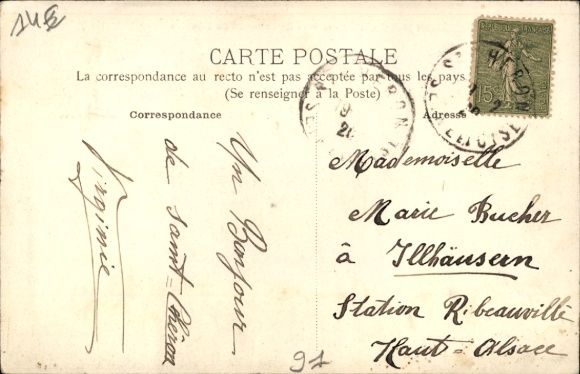 CARTE POSTALE
La correspondance au recto n'est pas acceptée par tous les pays
(Se renseigner à la Poste)
Correspondance
Adresse
15
Un Bonjour
de saint=Chéron
Virginie
Mademoiselle
Marie Bucher
à Illhäusern
Station Ribeauvillé
Haut=Alsace
91